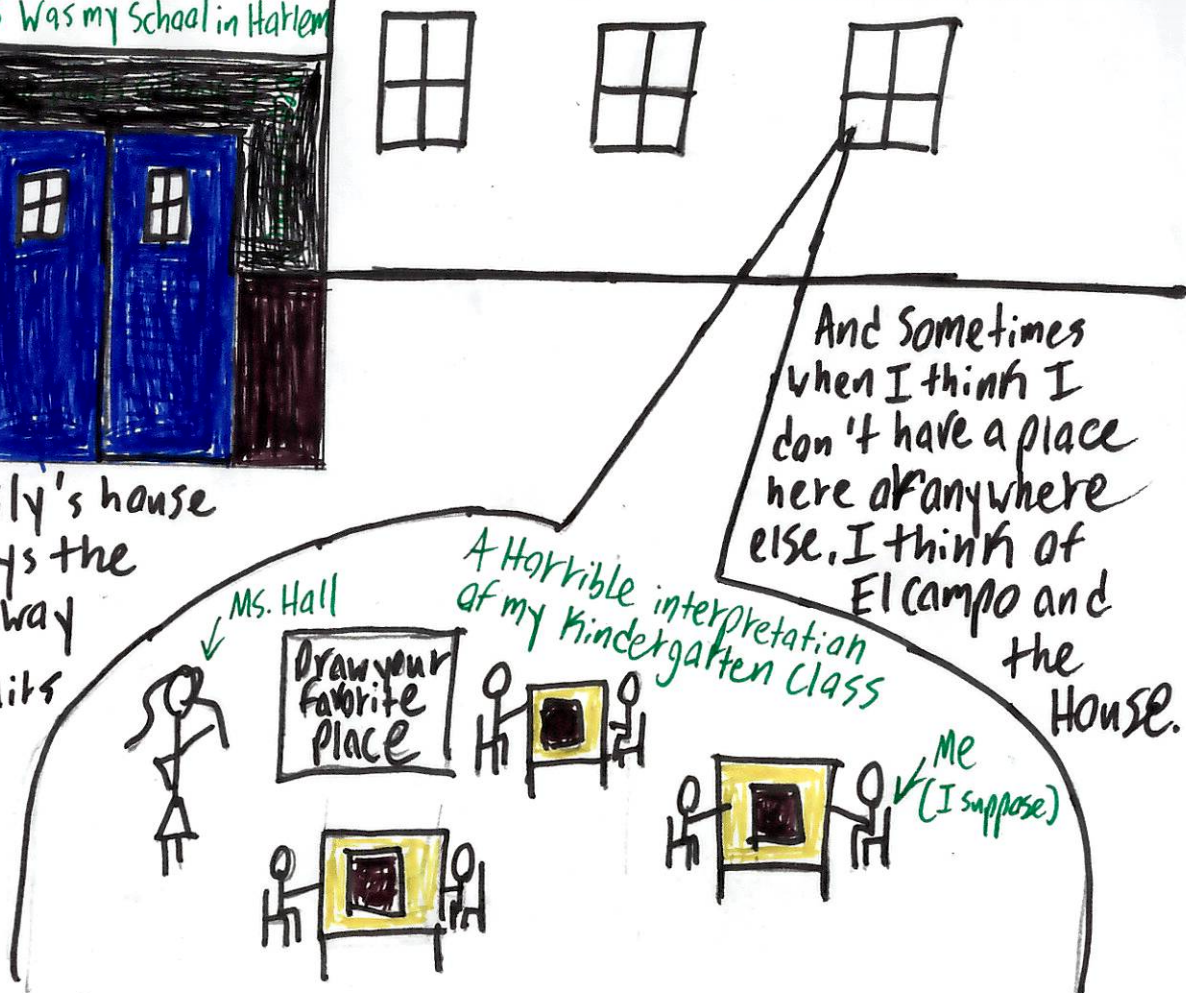 Was my School in Harlem
And Sometimes
when I think I
don't have a place
here or anywhere
else, I think of
El Campo and
the
House.
ly's house
ys the
way
its
A Horrible interpretation
of my Kindergarten Class
Ms. Hall
Draw your
favorite
place
Me
(I suppose)